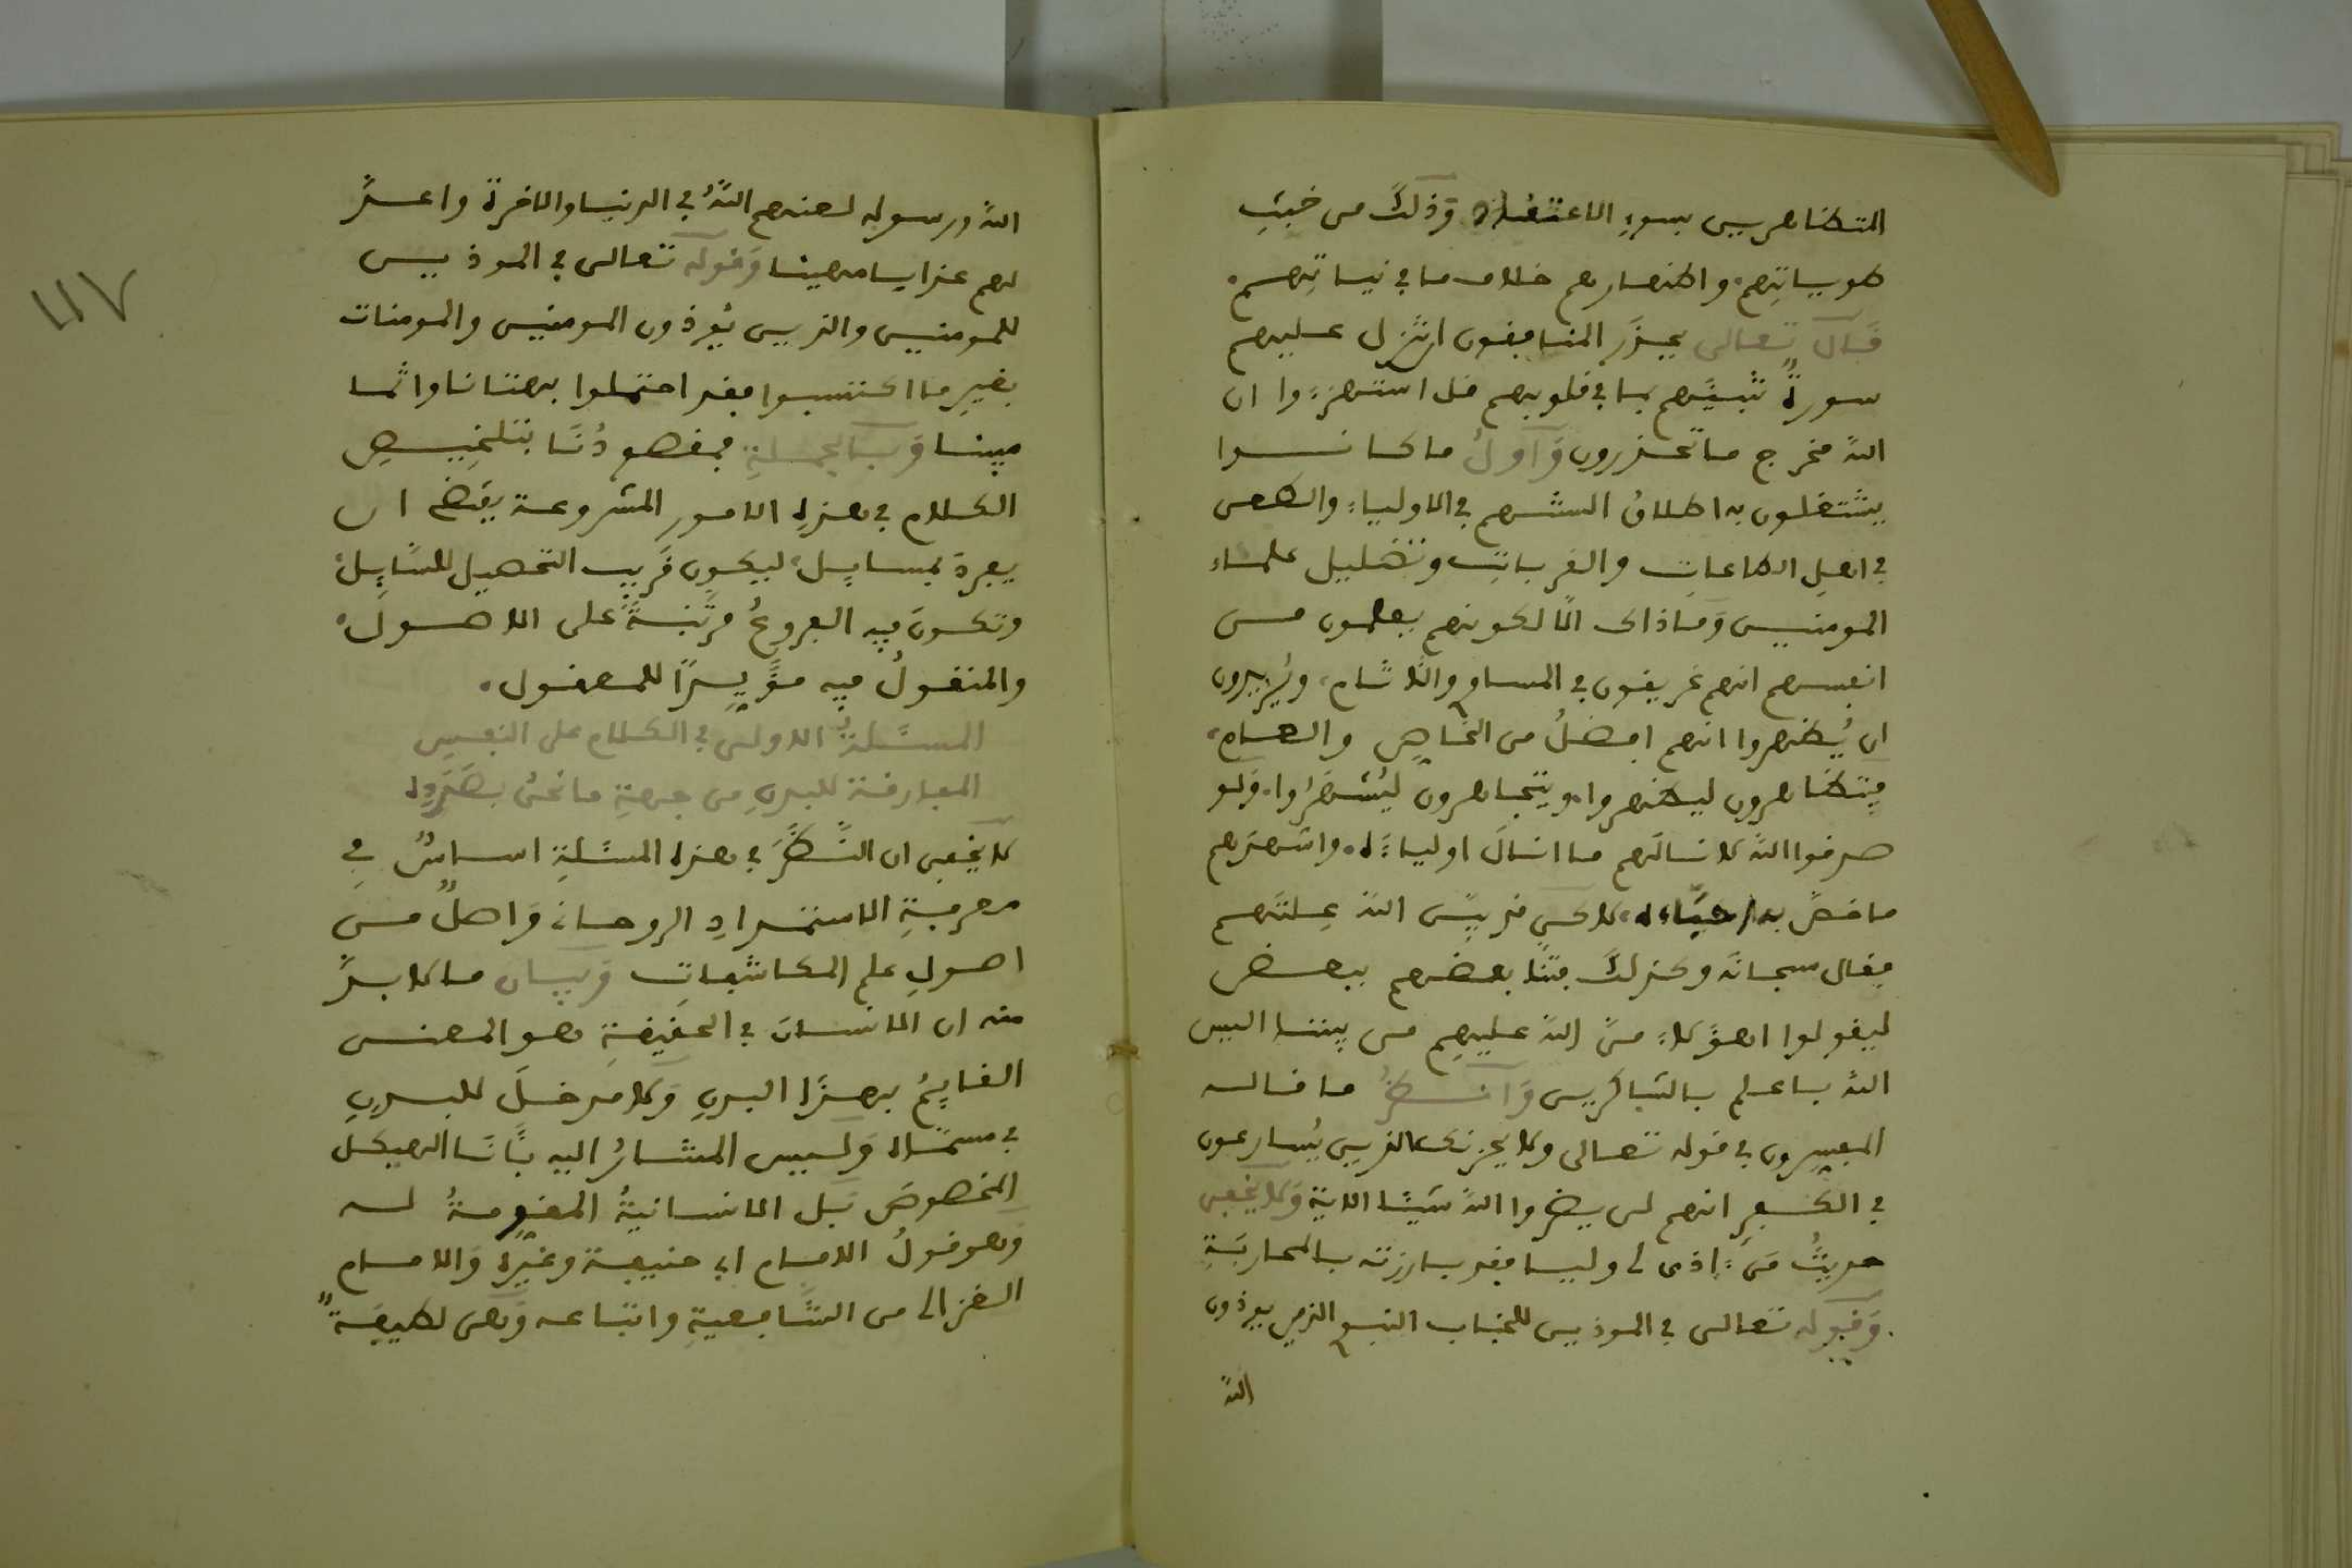 المتظاهرين بسوءِ الاعتقاد وَذلكَ من خبثِ
طوياتِهم، واظهارهم خلاف ما في نياتِهم،
قَال تعالى يحذَر المنافقون ان تنزل عليهم
سورةٌ تنبئَهم بما في قلوبهم قل استهزءوا ان
اللهَ مخرج ما تحذرون وَأولُ ما كانوا
يشتغلون به اطلاقُ الشتهم في الاولياءِ والطعن
في اهلِ الطاعاتِ والقرباتِ وتضليل علماء
المومنين وَما ذاك الَّا لكونهم يعلمون من
انفسهم انهم غريقون في المساوِ والآثام، ويُريدون
ان يُظهروا انهم افضلُ من الخاصِ والعام،
فيتظاهرون ليظهروا، ويتجاهرون ليُشهَرُوا، وَلو
صدقوا اللهَ لانالَهم ما انالَ اولياءَه، واشهدَهم
ما خصَّ به احبَّاءه، لاكن قد بيَّن اللهَ عِلتَهم
فقال سبحانَه وكذلكَ فتنَّا بعضهم ببعض
ليقولوا اهؤلاءِ منَّ اللهُ عليهِم من بيننا اليس
اللهُ باعلم بالشاكرين وَانظرُ ما قاله
المفسِرون في قوله تعالى ولا يحزنك الذين يُسارعون
في الكفرِ انهم لن يضروا اللهَ شيئًا الاية وَلا يخفى
حديثُ مَن ءاذى لي وليا فقد بارزته بالمحاربَةِ
وَقوله تعالى في الموذين للجناب النبوي الذين يوذون
اللهَ
اللهَ ورسوله لعنهم اللهُ في الدنيا والاخرة واعدَّ
لهم عذابا مهينا وَقوله تعالى في الموذيين
للمومنين والذين يُوذون المومنين والمومنات
بغيرِ ما اكتسبوا فقد احتملوا بهتانا واثما
مبينا وَبالجملةِ فمقصودُنَا بتلخيصِ
الكلام في هذهِ الامور المشروعة يقتضي ان
يجردَ بمسايل، ليكون قَريب التحصيل للسَّايِل،
وتكونَ فيه الفروعُ مرتَّبةً على الاصول،
والمنقولُ فيه مؤَيِدًا للمعقول.
المسئَلةُ الاولى في الكلامِ على النفسِ
المفارقة للبدنِ من جهةِ ما نحنُ بصَدَدِه
لا يخفى ان النَّظرَ في هذه المسئَلةِ اساسٌ في
معرفةِ الاستمدادِ الروحاني وَاصلٌ من
اصولِ علم المكاشفاتِ وَبيان ما لا بدَّ
منه ان الانسانَ في الحقيقةِ هو المعنى
القايمُ بهذَا البدنِ وَلا مدخلَ للبدنِ
في مسمَّاه وَليس المشارُ اليه بأنَا الهيكلَ
المخصوصَ بَل الانسانيةُ المقوِمةُ له
وَهو قولُ الامام ابي حنيفة وغيرِه وَالامام
الغزالي من الشَّافعيةِ واتباعه وَهي لطيفَةٌ
٧١١